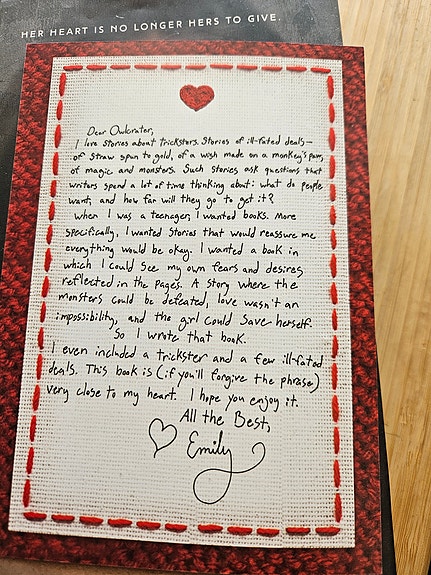 HER HEART IS NO LONGER HERS TO GIVE.
Dear Owlcrater,
I love stories about tricksters. Stories of ill-fated deals—
of straw spun to gold, of a wish made on a monkey's paw,
of magic and monsters. Such stories ask questions that
writers spend a lot of time thinking about: what do people
want, and how far will they go to get it?
When I was a teenager, I wanted books. More
specifically, I wanted stories that would reassure me
everything would be okay. I wanted a book in
which I could see my own fears and desires
reflected in the pages. A story where the
monsters could be defeated, love wasn't an
impossibility, and the girl could save herself.
So I wrote that book.
I even included a trickster and a few ill-fated
deals. This book is (if you'll forgive the phrase)
very close to my heart. I hope you enjoy it.
All the Best,
Emily